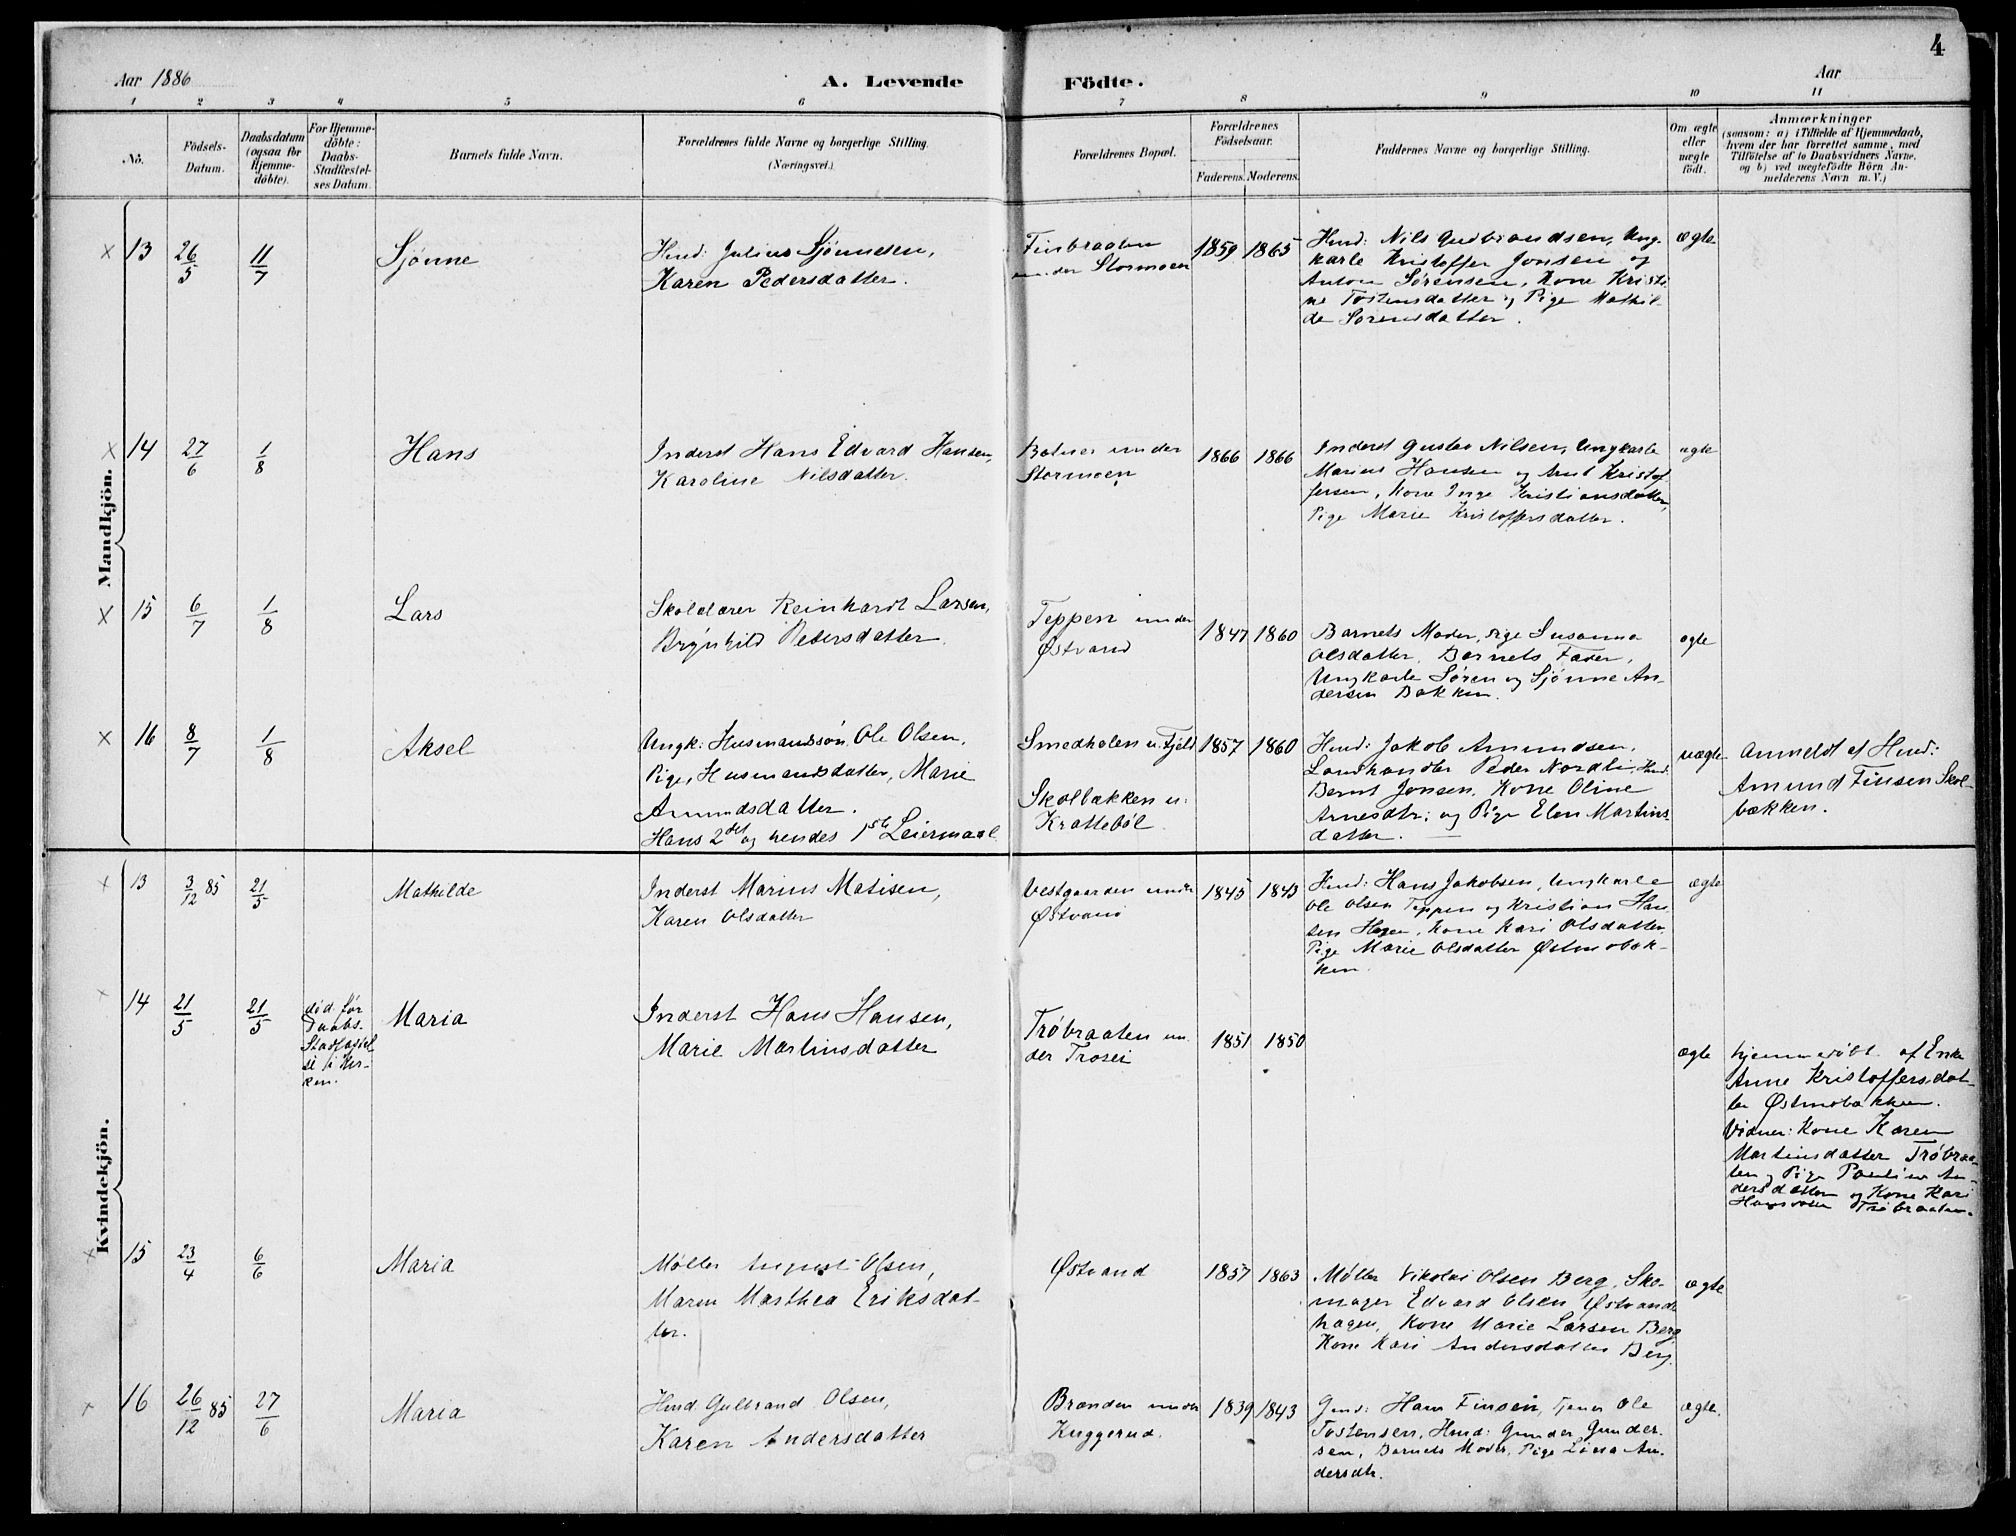 4
Aar 1886
A. Levende Födte.
Aar
1 2 3 4 5 6 7 8 9 10 11
No.
Födsels-
Datum.
Daabsdatum
(ogsaa for
Hjemme-
döbte).
For Hjemme-
döbte:
Daabs-
Stadfæstel-
ses Datum.
Barnets fulde Navn.
Forældrenes fulde Navne og borgerlige Stilling.
(Næringsvei.)
Forældrenes Bopæl.
Forældrenes
Födselsaar.
Faderens. Moderens.
Faddernes Navne og borgerlige Stilling.
Om ægte
eller
uægte
födt.
Anmærkninger
(saasom: a) i Tilfælde af Hjemmedaab,
hvem der har forrettet samme, med
Tilföielse af to Daabsvidners Navne,
og b) ved uægtefödte Börn An-
melderens Navn m. V.)
Mandkjön.
× 13
26/5
11/7
Sjønne
Husd: Julius Sjønnesen,
Karen Pedersdatter.
Finbraaten
under Stormoen
1859 1865
Husd: Nils Gudbrandsen, Ung-
karle Kristoffer Jonsen og
Anton Sørensen, Kone Kristi-
ne Tostensdatter og Pige Mathil-
de Sørensdatter.
ægte
× 14
27/6
1/8
Hans
Inderst Hans Edvard Hansen,
Karoline Nilsdatter.
under
Stormoen
1866 1866
Inderst Gustav Nilsen, Ungkarle
Marius Hansen og Arnt Kristof-
fersen, Kone Inge Kristiansdatter,
Pige Marie Kristoffersdatter.
ægte
× 15
6/7
1/8
Lars
Skolelærer Reinhardt Larsen,
Brynhild Petersdatter.
Teppen under
Østvand
1847 1860
Barnets Moder, Pige Susanna
Olsdatter, Barnets Fader,
Ungkarle Søren og Sjønne An-
dersen Bakken.
ægte
× 16
8/7
1/8
Aksel
Ungk: Husmandssøn Ole Olsen,
Pige, Husmandsdatter, Marie
Amundsdatter.
Hans 2det og hendes 1ste Leiermaal.
Smedholen u. Fjeld
Skolbækken u.
Krattebøl
1857 1860
Husd: Jakob Amundsen,
Landhandler Peder Nordli, Husd.
Bernt Jonsen, Kone Oline
Arnesdtr. og Pige Elen Martins-
datter.
uægte
Anmeldt af Husd:
Amund Finsen Skol-
bækken.
Kvindekjön.
× 13
3/12 85
21/5
Mathilde
Inderst Marius Matisen,
Karen Olsdatter
Vestgaarden under
Østvand
1845 1843
Husd: Hans Jakobsen, Ungkarle
Ole Olsen Teppen og Kristian Han-
sen Hagen, Kone Kari Olsdatter,
Pige Marie Olsdatter Østmobak-
ken.
ægte
× 14
21/5
21/5
død før
Daabs-
Stadfæstel-
se i Kir-
ken.
Maria
Inderst Hans Hansen,
Marie Martinsdatter
Trøbraaten un-
der Trosei
1851 1850
ægte
hjemmedøbt af Enke
Anne Kristoffersdat-
ter Østmobakken.
Vidner: Kone Karen
Martinsdatter Trøbraa-
ten, Pige Pauline An-
dersdatter og Kone Kari
Hansdatter Trøbraaten.
× 15
23/4
6/6
Maria
Møller August Olsen,
Maren Marthea Eriksdat-
ter.
Østvand
1857 1863
Møller Nikolai Olsen Berg, Sko-
mager Edvard Olsen Østvand-
hagen, Kone Marie Larsen Berg,
Kone Kari Andersdatter Berg.
ægte
× 16
26/12 85
27/6
Maria
Husd. Gulbrand Olsen,
Karen Andersdatter
Brænden under
Kuggerud.
1839 1843
Gmd: Hans Finsen, Tjener Ole
Tostensen, Husd: Gunder Gunder-
sen, Barnets Moder, Pige Lina An-
dersdtr.
ægte.